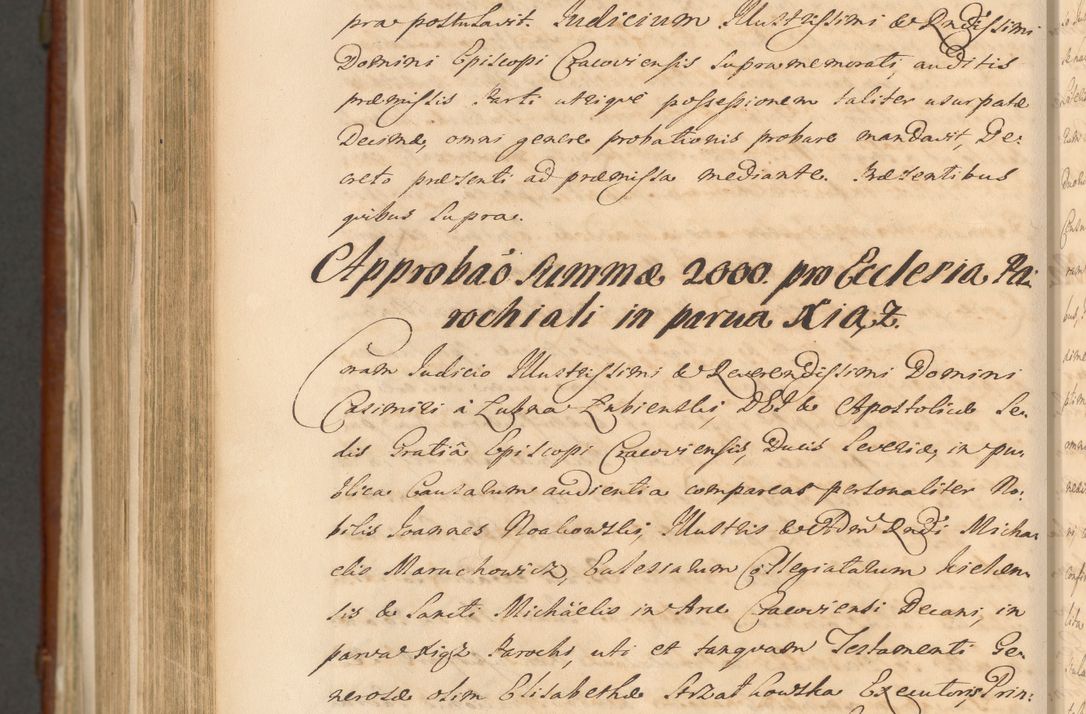 pra postulavit. Iudicium Illustrissimi & Rndissimi
Domini Episcopi Cracoviensis supramemorati, auditis
præmissis Parti utriqué possessionem taliter usurpatæ
Decimæ, omni genere probationis probare mandavit, De:
creto præsenti ad præmissa mediante. Præsentibus
quibus supra.
Approbaõ Summæ 2000. pro Ecclesia Pa:
rochiali in parva Xiąż.
Coram Iudicio Illustrissimi & Reverendissimi Domini
Casimiri à Łubna Łubienski, DEI & Apostolicæ Se:
dis Gratiâ Episcopi Cracoviensis, Ducis Severiæ, in pu:
blica Causarum audientia comparens personaliter No:
bilis Ioannes Noakowski, Illustris & Adm Rndi Micha:
elis Maruchowicz, Eclesiarum Collegiatarum kielcen:
sis & Sancti Michäelis in Arce Cracoviensi Decani, in
parva Xiąż Parochi, uti et tanquam Testamenti Ge:
nerosæ olim Elisabethæ Executoris Prin: